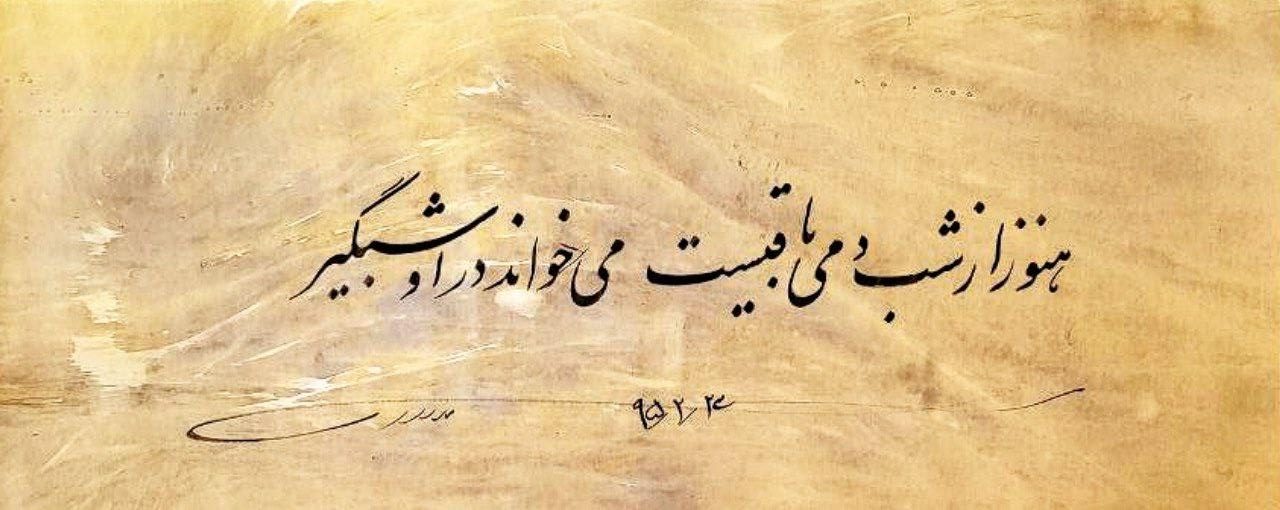 هنوز از شب دمی باقیست می خواند در او شبگیر
۹۵/۲/۲۳